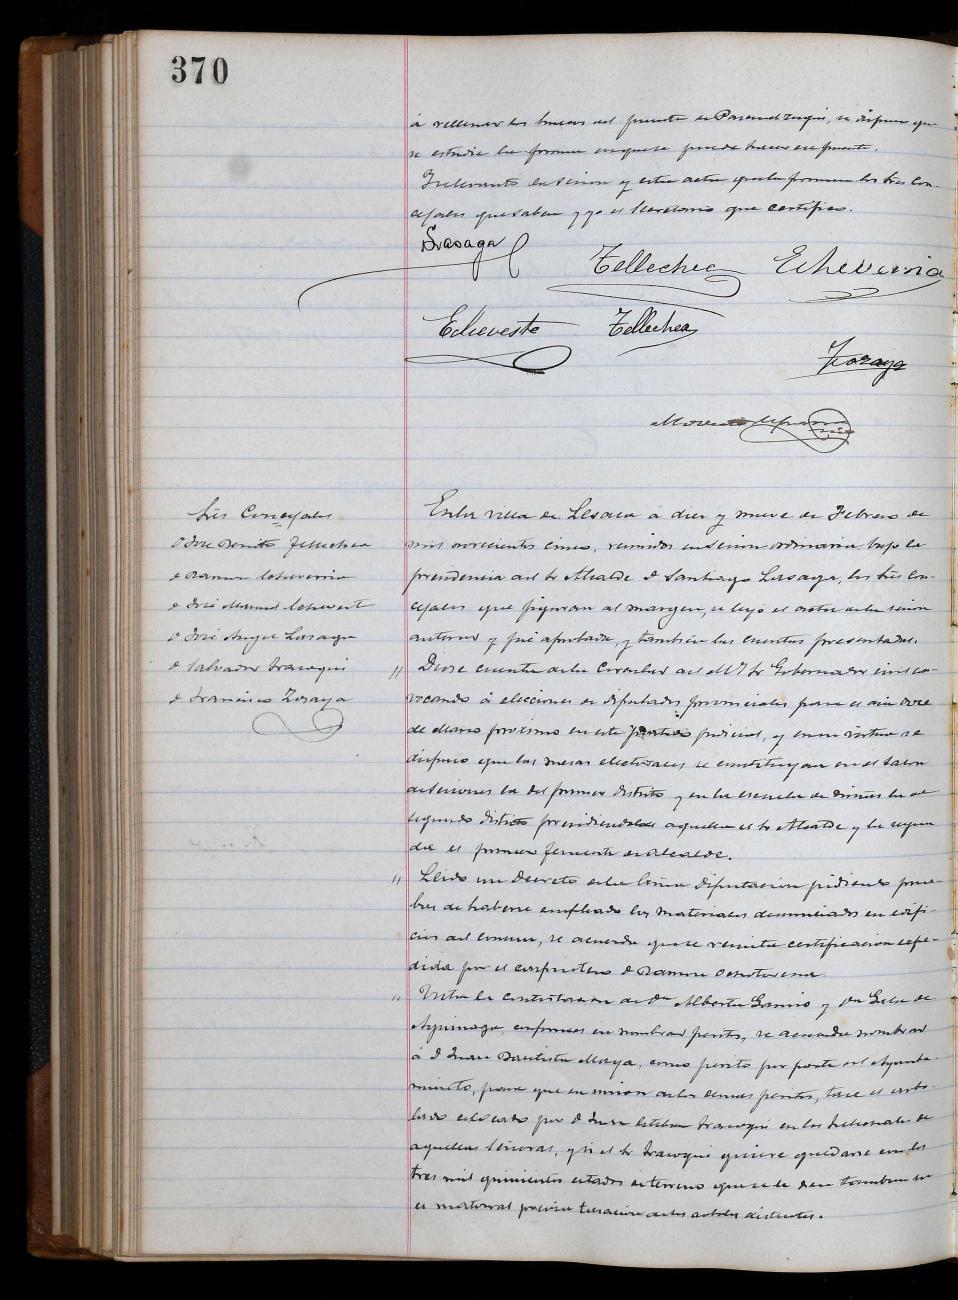 370
á rellenar los huecos del puente de , se dispuso que
se estudie la forma en que se pueda hacer ese puente.
Y se levantó la sesion y esta acta que la firman los Sres Con-
cejales que saben y yo el Secretario que certifico.
Lasaga
Tellechea Echeverria
Echeveste Tellechea
Zozaya
Sres Concejales
D José Benito Tellechea
" Ramon Echeverria
" José Manuel Echevest
" José Angel Lasaga
" Salvador Irazoqui
" Francisco Zozaya
En la villa de Lesaca á diez y nueve de Febrero de
mil novecientos cinco, reunidos en sesion ordinaria bajo la
presidencia del Sr Alcalde D Santiago Lasaga, los Sres Con-
cejales que figuran al margen, se leyó el acta de la sesion
anterior y fué aprobada, y tambien las cuentas presentadas.
" Diose cuenta de la Circular del M I Sr Gobernador civil con-
vocando á elecciones de diputados provinciales para el dia doce
de Marzo proximo en este partido judicial, y en su virtud se
dispuso que las mesas electorales se constituyan en el salon
de sesiones la del primer distrito y en la escuela de niños la del
segundo distrito presidiendo aquella el Sr Alcalde y la segun-
da el primer Teniente de alcalde.
" Leido un decreto de la Excma Diputacion pidiendo prue-
bas de haberse empleado los materiales denunciados en edifi-
cios del comun, se acuerda que se remita certificacion espe-
dida por el carpintero D Ramon
" Vista la contestacion de Dª Alberta Gamio y Dª de
, conformes en nombrar perito, se acuerda nombrar
á D Juan Bautista Maya, como perito por parte del Ayunta-
miento, para que en union de los demas peritos, tase el arbo-
lado por D Juan Esteban Irazoqui en los helechales de
aquellas Señoras, y si el Sr Irazoqui quiere quedarse con los
tres mil quinientos estados de terreno que se le den tambien en
el matorral previa tasacion de los arboles existentes.